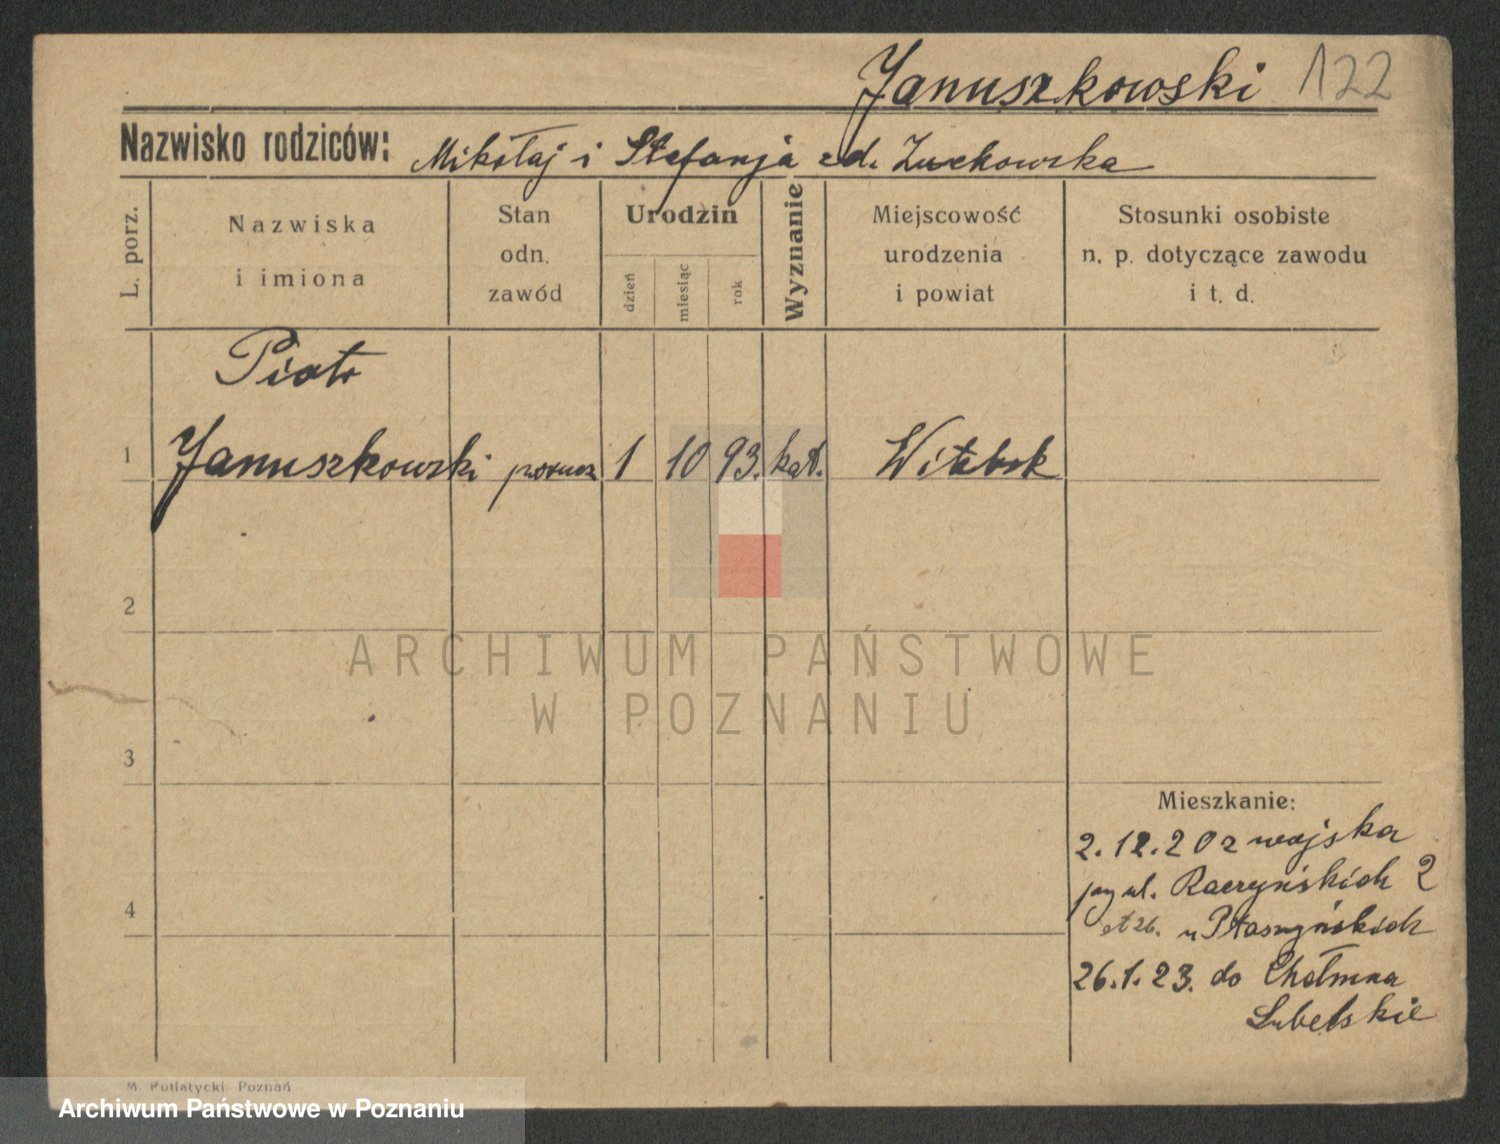 Januszkowski 122
Nazwisko rodziców: Mikołaj i Stefanja zd. Zuchowska
L. porz.
Nazwiska
i imiona
Stan
odn.
zawód
Urodzin
dzień
miesiąc
rok
Wyznanie
Miejscowość
urodzenia
i powiat
Stosunki osobiste
n. p. dotyczące zawodu
i t. d.
Piotr
1 Januszkowski porucz 1 10 93. kat. Witebsk
2
ARCHIWUM PAŃSTWOWE
W POZNANIU
3
Mieszkanie:
2.12.20 z wojska
przy ul. Raczyńskich 2
u Ptaszyńskich
4
26.1.23. do Chełmna
Lubelskie
M. Putiatycki Poznań
Archiwum Państwowe w Poznaniu